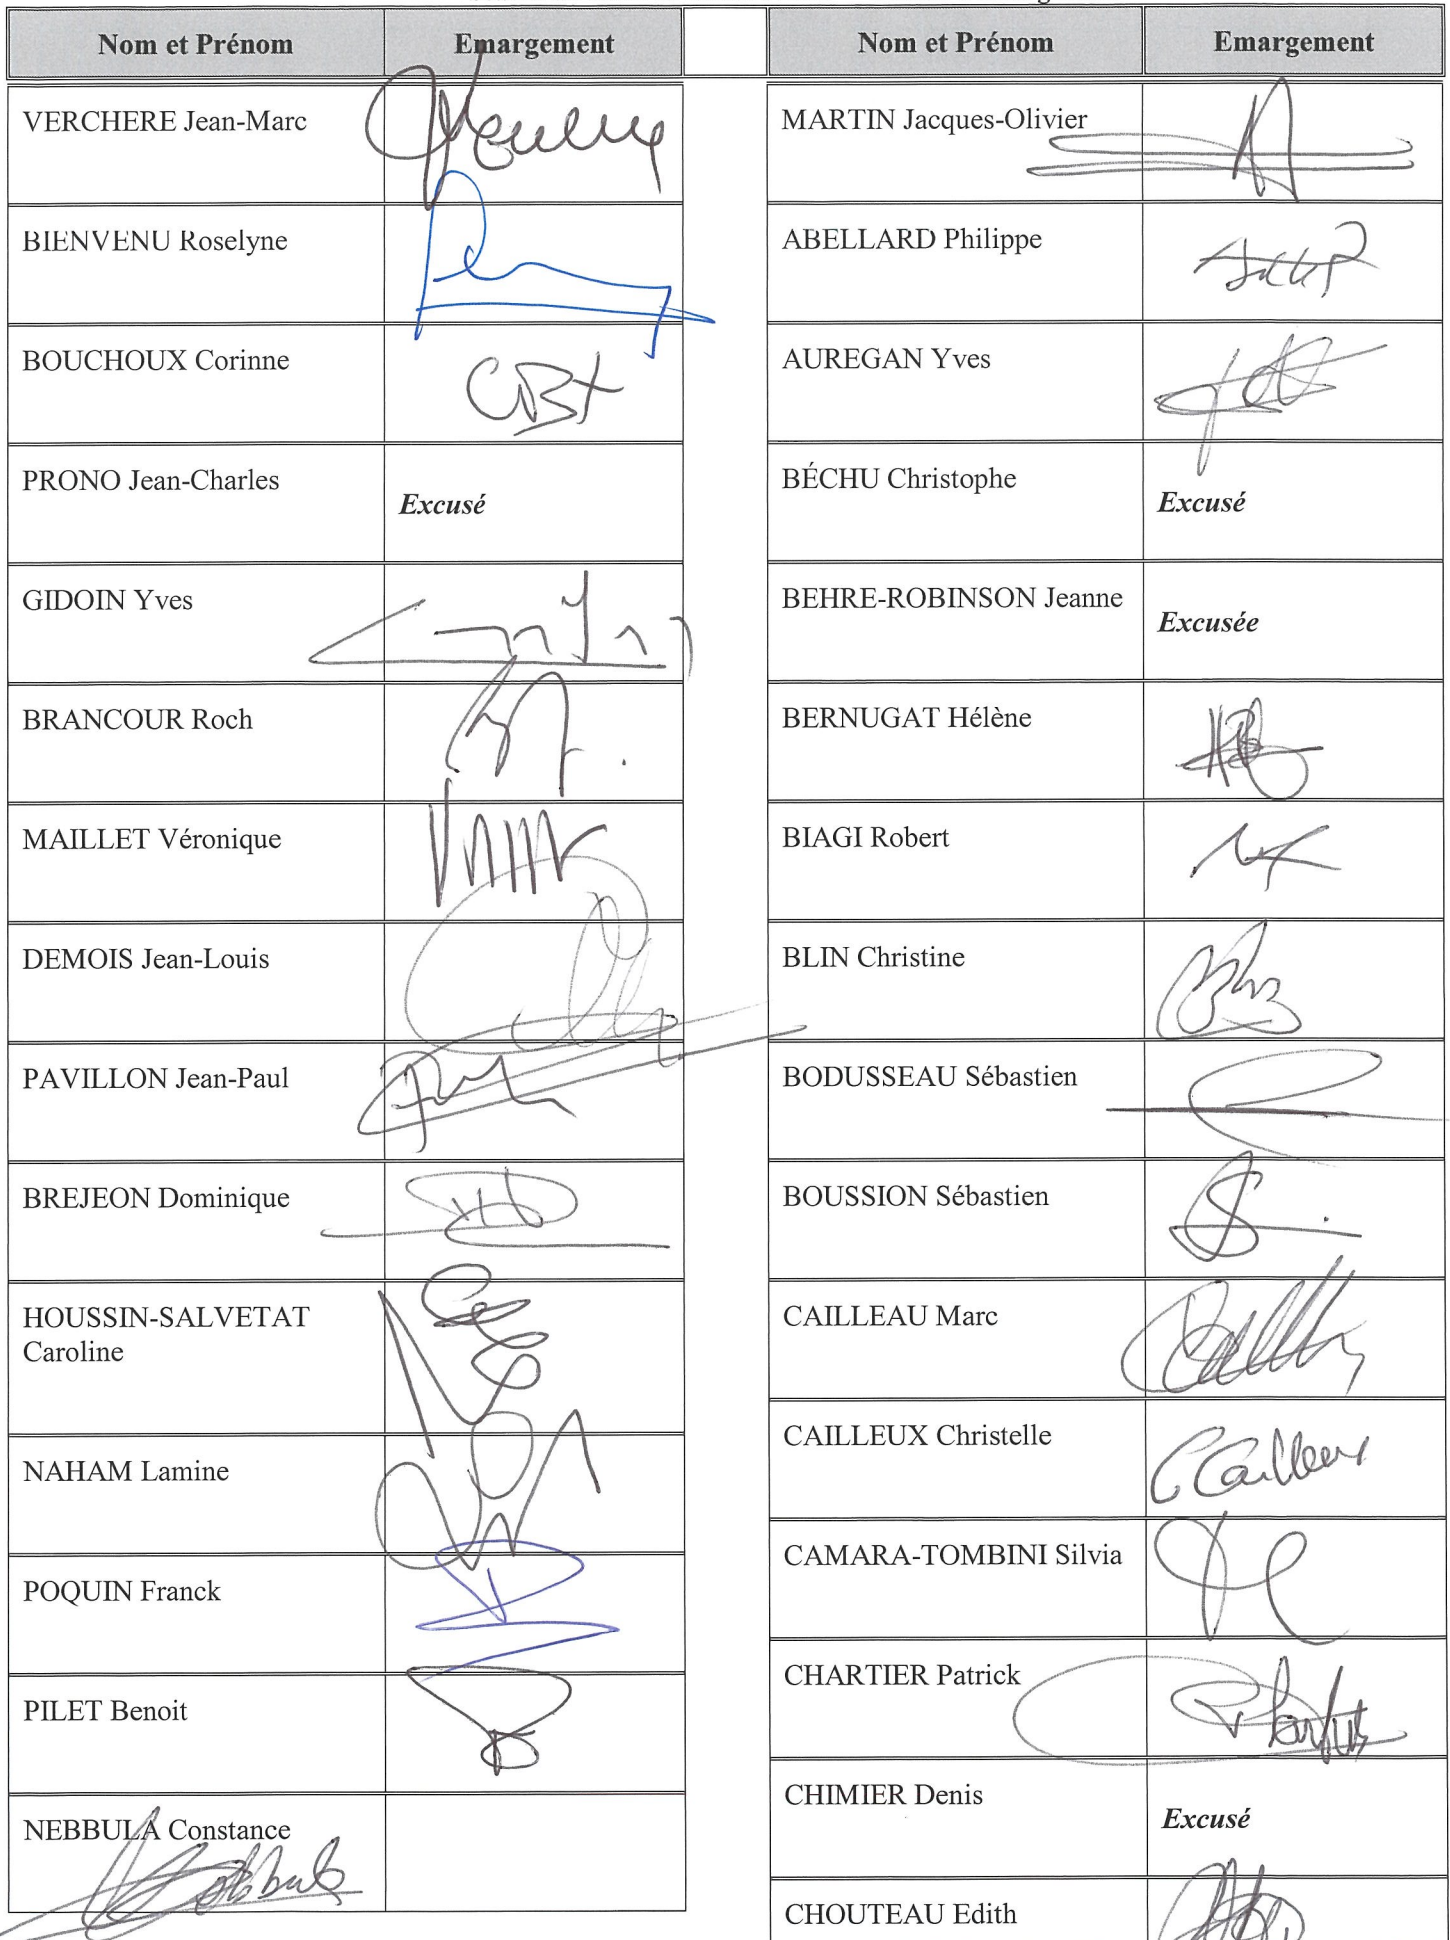 Nom et Prénom Emargement
VERCHERE Jean-Marc
BIENVENU Roselyne
BOUCHOUX Corinne
CBX
PRONO Jean-Charles Excusé
GIDOIN Yves
BRANCOUR Roch
MAILLET Véronique
DEMOIS Jean-Louis
PAVILLON Jean-Paul
BREJEON Dominique
HOUSSIN-SALVETAT
Caroline
NAHAM Lamine
POQUIN Franck
PILET Benoit
NEBBULA Constance
Nom et Prénom Emargement
MARTIN Jacques-Olivier
ABELLARD Philippe
AUREGAN Yves
BÉCHU Christophe Excusé
BEHRE-ROBINSON Jeanne Excusée
BERNUGAT Hélène
BIAGI Robert
BLIN Christine
BODUSSEAU Sébastien
BOUSSION Sébastien
CAILLEAU Marc
CAILLEUX Christelle
C Cailleux
CAMARA-TOMBINI Silvia
CHARTIER Patrick
CHIMIER Denis Excusé
CHOUTEAU Edith